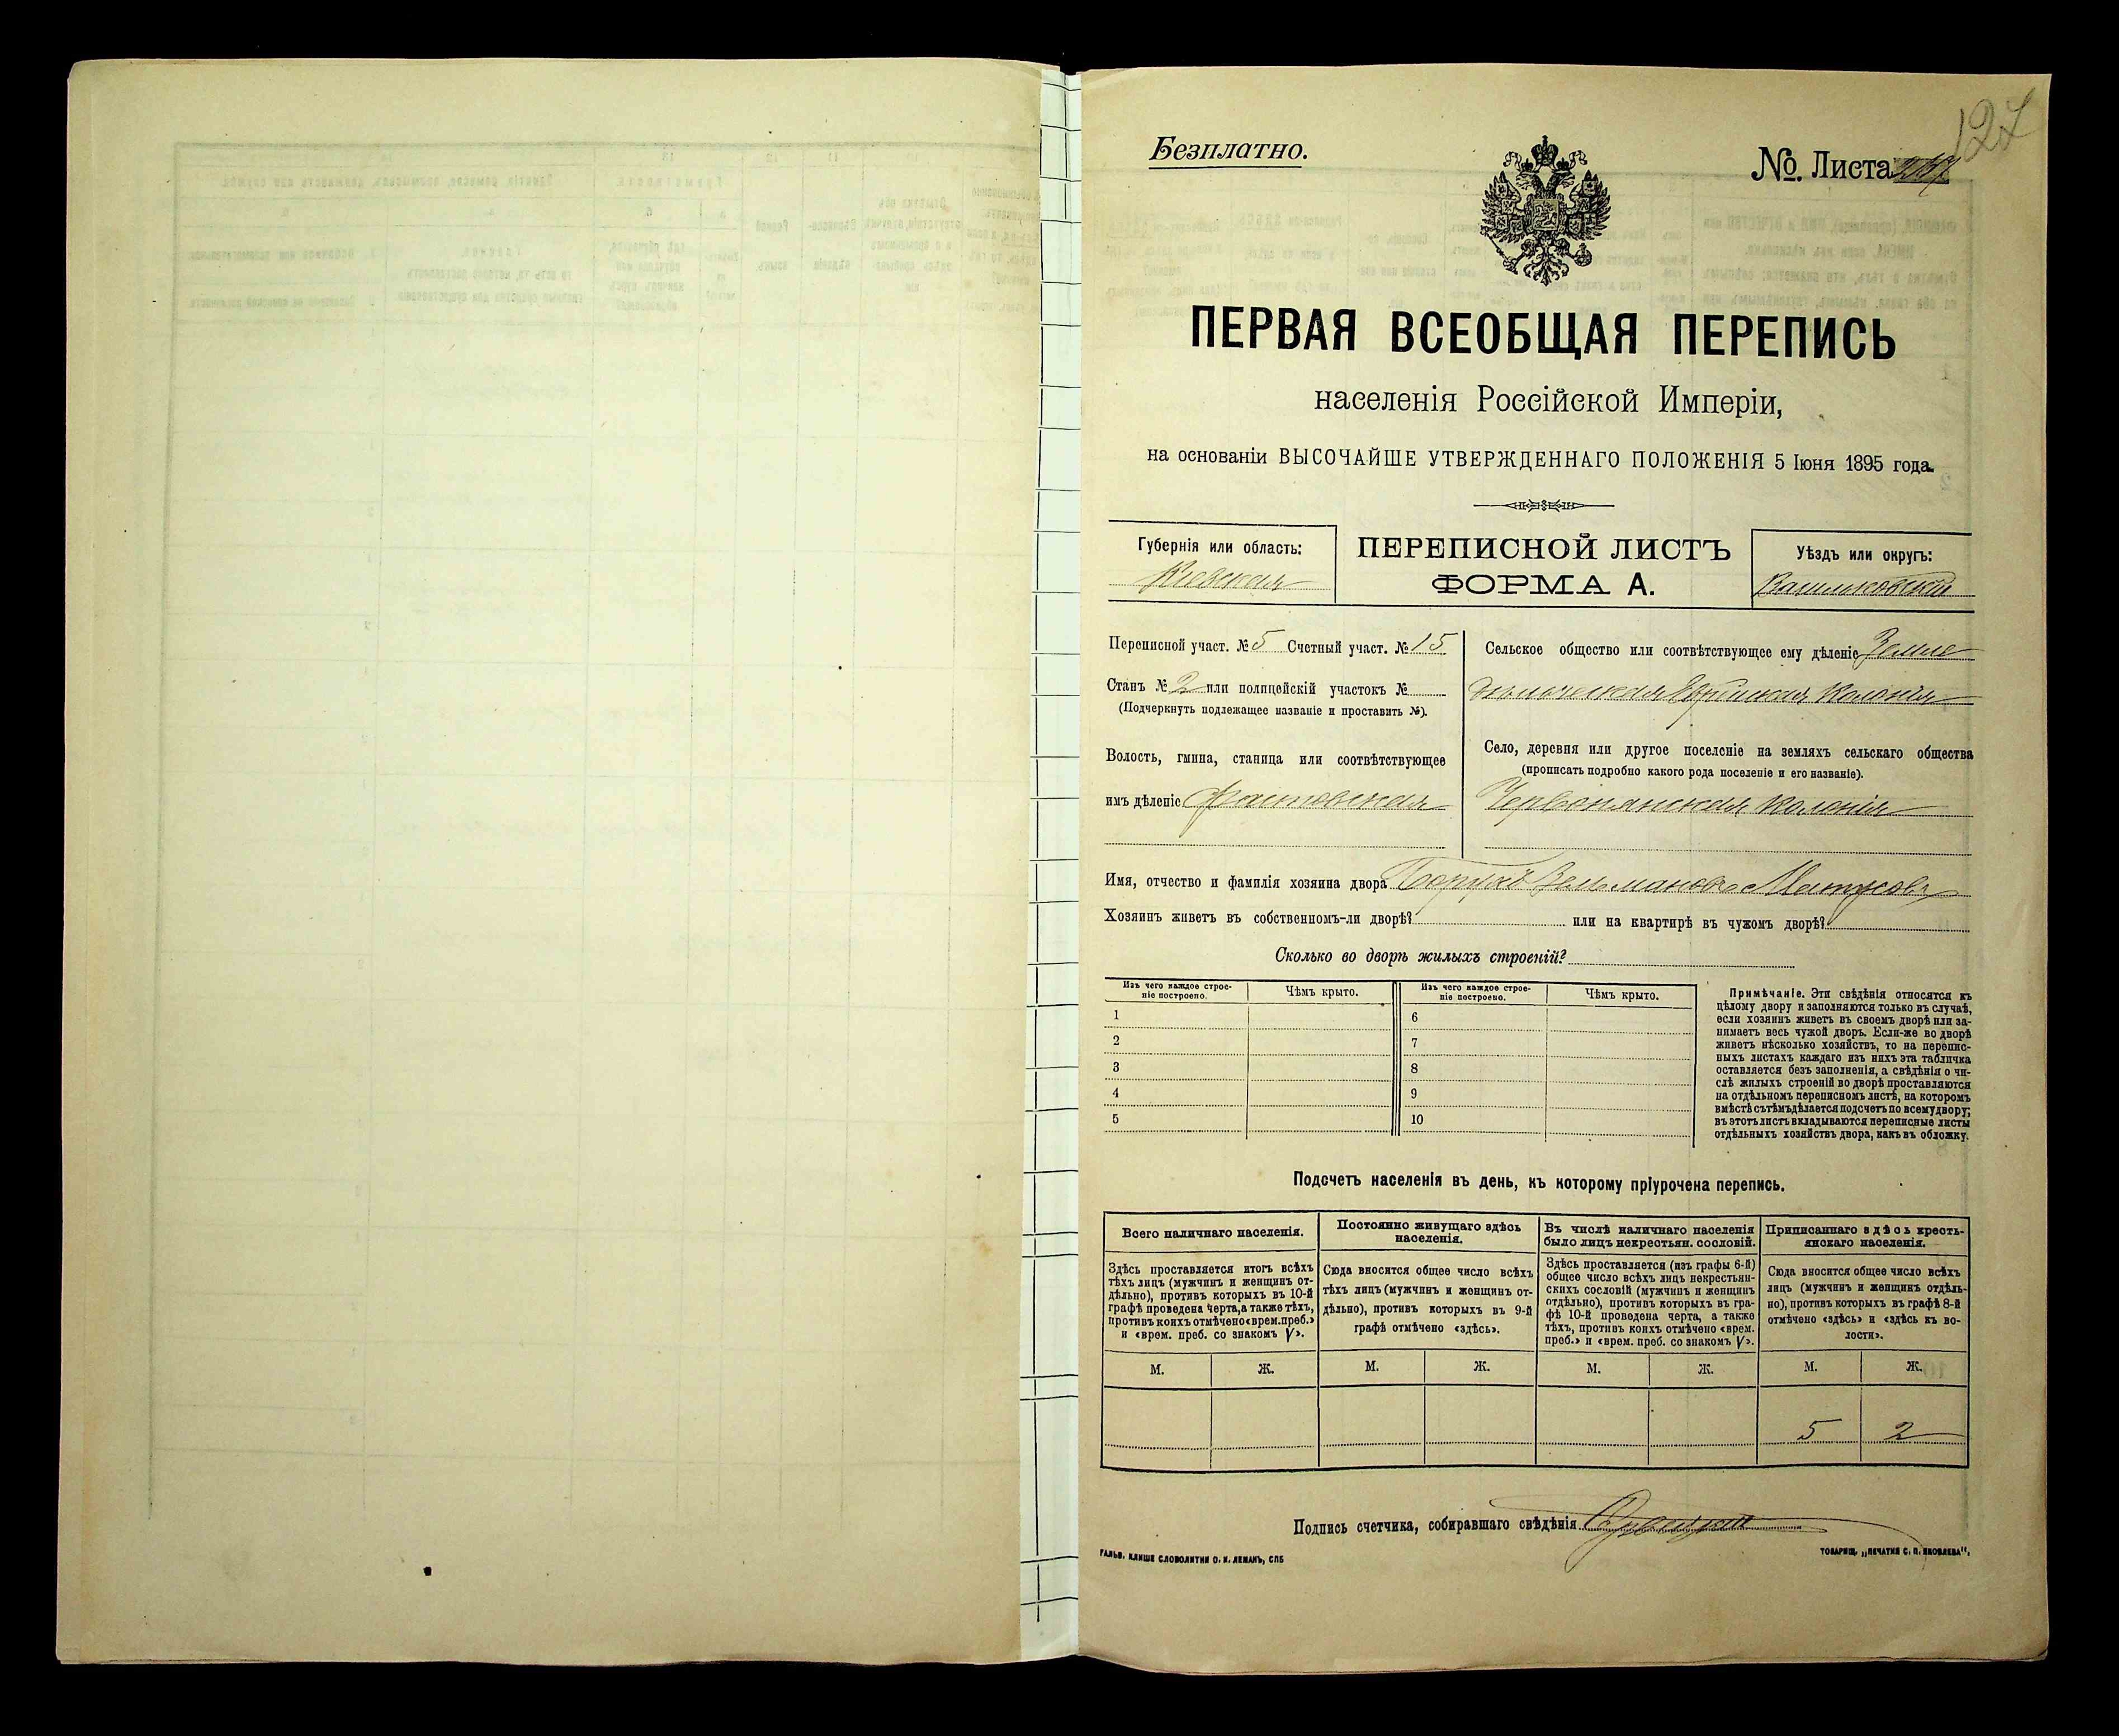 127
Безплатно.
№. Листа
ПЕРВАЯ ВСЕОБЩАЯ ПЕРЕПИСЬ
населенія Россійской Имперіи,
на основаніи ВЫСОЧАЙШЕ УТВЕРЖДЕННАГО ПОЛОЖЕНІЯ 5 Іюня 1895 года.
Губернія или область:
Кіевская
ПЕРЕПИСНОЙ ЛИСТЪ
ФОРМА А.
Уѣздъ или округъ:
Васильковскій
Переписной участ. № 5 Счетный участ. № 15
Станъ № 2 или полицейскій участокъ №
(Подчеркнуть подлежащее названіе и проставить №).
Волость, гмина, станица или соотвѣтствующее
имъ дѣленіе Фастовская
Сельское общество или соотвѣтствующее ему дѣленіе Земле
дѣльческая Еврейская Колонія
Село, деревня или другое поселеніе на земляхъ сельскаго общества
(прописать подробно какого рода поселеніе и его названіе).
Червонянская колонія
Имя, отчество и фамилія хозяина двора Борухъ Зельмановъ Матусовъ
Хозяинъ живетъ въ собственномъ-ли дворѣ? или на квартирѣ въ чужомъ дворѣ?
Сколько во дворѣ жилыхъ строеній?
Изъ чего каждое строе-
ніе построено.
Чѣмъ крыто.
Изъ чего каждое строе-
ніе построено.
Чѣмъ крыто.
1 6
2 7
3 8
4 9
5 10
Примѣчаніе. Эти свѣдѣнія относятся къ
цѣлому двору и заполняются только въ случаѣ,
если хозяинъ живетъ въ своемъ дворѣ или за-
нимаетъ весь чужой дворъ. Если-же во дворѣ
живетъ нѣсколько хозяйствъ, то на перепис-
ныхъ листахъ каждаго изъ нихъ эта табличка
оставляется безъ заполненія, а свѣдѣнія о чи-
слѣ жилыхъ строеній во дворѣ проставляются
на отдѣльномъ переписномъ листѣ, на которомъ
вмѣстѣ съ тѣмъ дѣлается подсчетъ по всему двору;
въ этотъ листъ вкладываются переписные листы
отдѣльныхъ хозяйствъ двора, какъ въ обложку.
Подсчетъ населенія въ день, къ которому пріурочена перепись.
Всего наличнаго населенія.
Здѣсь проставляется итогъ всѣхъ
тѣхъ лицъ (мужчинъ и женщинъ от-
дѣльно), противъ которыхъ въ 10-й
графѣ проведена черта, а также тѣхъ,
противъ коихъ отмѣчено «врем. преб.»
и «врем. преб. со знакомъ V».
Постоянно живущаго здѣсь
населенія.
Сюда вносится общее число всѣхъ
тѣхъ лицъ (мужчинъ и женщинъ от-
дѣльно), противъ которыхъ въ 9-й
графѣ отмѣчено «здѣсь».
Въ числѣ наличнаго населенія
было лицъ некрестьян. сословій.
Здѣсь проставляется (изъ графы 6-й)
общее число всѣхъ лицъ некрестьян-
скихъ сословій (мужчинъ и женщинъ
отдѣльно), противъ которыхъ въ гра-
фѣ 10-й проведена черта, а также
тѣхъ, противъ коихъ отмѣчено «врем.
преб.» и «врем. преб. со знакомъ V».
Приписаннаго здѣсь кресть-
янскаго населенія.
Сюда вносится общее число всѣхъ
лицъ (мужчинъ и женщинъ отдѣль-
но), противъ которыхъ въ графѣ 8-й
отмѣчено «здѣсь» и «здѣсь къ во-
лости».
М. Ж. М. Ж. М. Ж. М. Ж.
5 2
Подпись счетчика, собиравшаго свѣдѣнія
ГАЛЬВ. КЛИШЕ СЛОВОЛИТНИ О. И. ЛЕМАНЪ, СПБ
ТОВАРИЩ. „ПЕЧАТНЯ С. П. ЯКОВЛЕВА“.